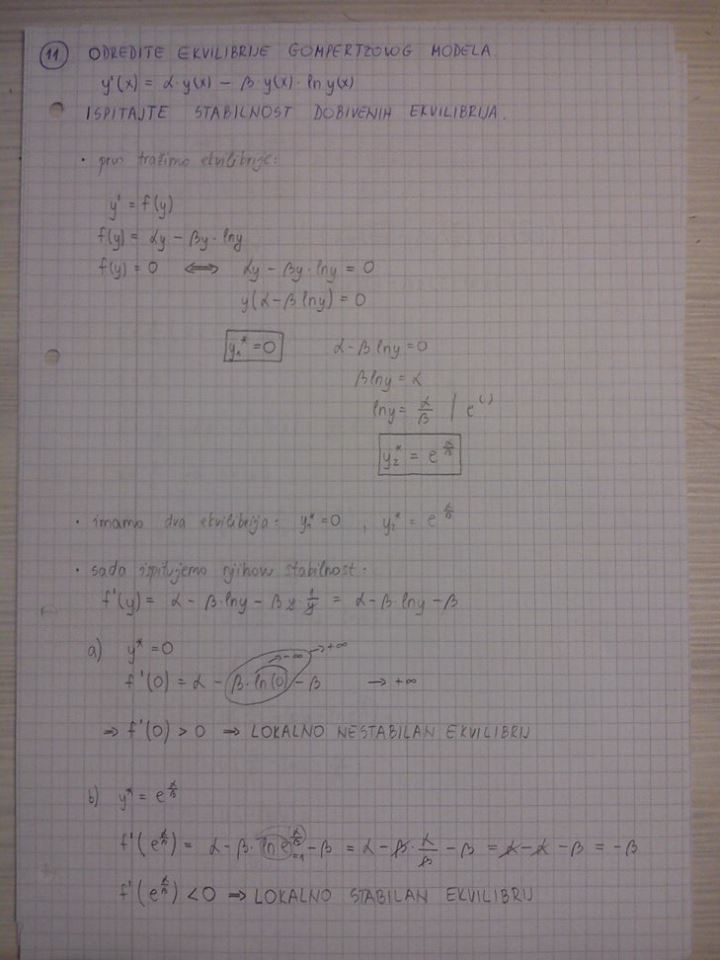 11 ODREDITE EKVILIBRIJE GOMPERTZOVOG MODELA.
y'(x) = α·y(x) − β·y(x)·ln y(x)
ISPITAJTE STABILNOST DOBIVENIH EKVILIBRIJA.
· prvo tražimo ekvilibrije:
y' = f(y)
f(y) = αy − βy·lny
f(y) = 0 ⟺ αy − βy·lny = 0
y(α−βlny) = 0
y₁* = 0 α−βlny = 0
βlny = α
lny = α/β / e^( )
y₂* = e^(α/β)
· imamo dva ekvilibrija: y₁* = 0 , y₂* = e^(α/β)
· sada ispitujemo njihovu stabilnost:
f'(y) = α − β·lny − βy·1/y = α − β·lny − β
a) y* = 0
→−∞ →+∞
f'(0) = α − β·ln(0) − β → +∞
⇒ f'(0) > 0 ⇒ LOKALNO NESTABILAN EKVILIBRIJ
b) y* = e^(α/β)
f'(e^(α/β)) = α − β·ln e^(α/β) − β = α − β·α/β − β = α − α − β = −β
=1
f'(e^(α/β)) < 0 ⇒ LOKALNO STABILAN EKVILIBRIJ